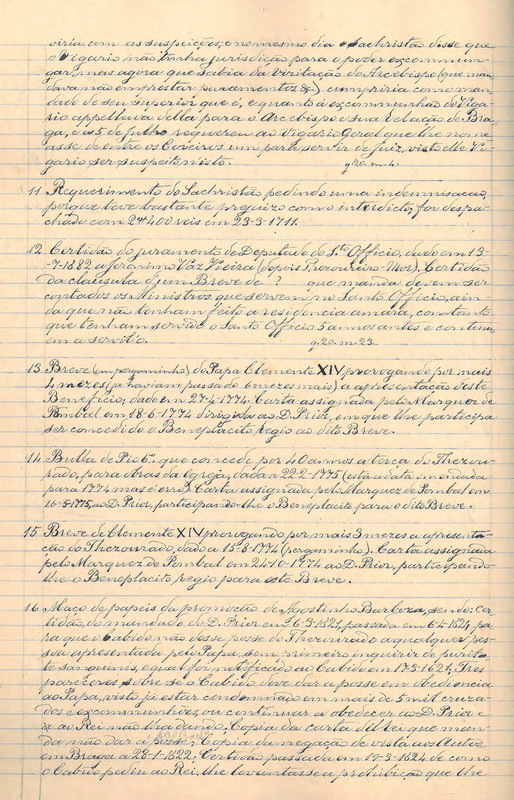 viria com as suspeições; e no mesmo dia o Sachristão disse que
o Vigario não tinha jurisdicção para o poder excommun-
gar, mas agora que sabia da Visitação do Arcebispo (que man-
dava não emprestar paramentos &c) cumpriria como man-
dado de seu superior que é, e quanto á excommunhão do Viga-
rio appellava della para o Arcebispo e sua Relação de Bra-
ga, e a 5 de Julho requereu ao Vigario Geral que lhe nome-
asse de entre os Coreiros um para servir de Juiz, visto elle Vi-
gario ser suspeito nisto. g. 20. m. 4.
11 Requerimento do Sachristão pedindo uma indemnisação,
porque teve bastante prejuizo com o interdicto, foi despa-
chado com 24400 reis em 23-3-1711.
12 Certidão do juramento de Deputado do Sto Officio, dado em 13-
-7-1682 a Jeronimo Vaz Vieira (depois Thezoureiro-Mor). Certidão
da clausula d'um Breve de ? que manda devem ser
contados os Ministros que servem no Santo Officio, ain-
da que não tenham feito a residencia amara, comtanto
que tenham servido o Santo Officio 5 annos antes e continu-
em a servil-o. g. 20. m. 23.
13 Breve (em pergaminho) do Papa Clemente XIV prorogando por mais
4 mezes (já haviam passado 6 mezes mais) a apresentação deste
Beneficio, dado em 27-4-1774. Carta assignada pelo Marquez de
Pombal em 18-6-1774 dirigida ao D. Prior, em que lhe participa
ser concedido o Beneplacito Regio ao dito Breve.
14 Bulla de Pio 6.º que concede por 40 annos a terça do Thezou-
rado, para obras da Igreja, dada a 22-2-1775 (está a data emendada
para 1774 mas é erro). Carta assignada pelo Marquez de Pombal em
16-5-1775, ao D. Prior, participando-lhe o Beneplacito para o dito Breve.
15 Breve de Clemente XIV prorogando por mais 3 mezes a apresenta-
ção do Thezourado, dado a 15-8-1774 (pergaminho). Carta assignada
pelo Marquez de Pombal em 24-10-1774 ao D. Prior, participando-
lhe o Beneplacito regio para este Breve.
16 Maço de papeis da promoção de Agostinho Barboza, sendo: Cer-
tidão, do mandado do D. Prior em 6-3-1624, passada em 6-4-1624 pa-
ra que o Cabido não desse posse do Thezourado a qualquer pes-
soa apresentada pelo Papa, sem primeiro inquirir de purita-
te sanguinis, e qual foi notificado ao Cabido em 17-3-1624. Tres
pareceres sobre se o Cabido deve dar a posse em obediencia
ao Papa, visto já estar condemnado em mais de 5 mil cruza-
dos e excommunhões, ou continuar a obedecer ao D. Prior e
ao Rei não lha dando; Copia da carta del Rei que man-
da não dar a posse; Copia da negação de vista aos Autos
em Braga a 28-1-1622; Certidão passada em 19-3-1624 de como
o Cabido pediu ao Rei, lhe levantasse a prohibição que lhe